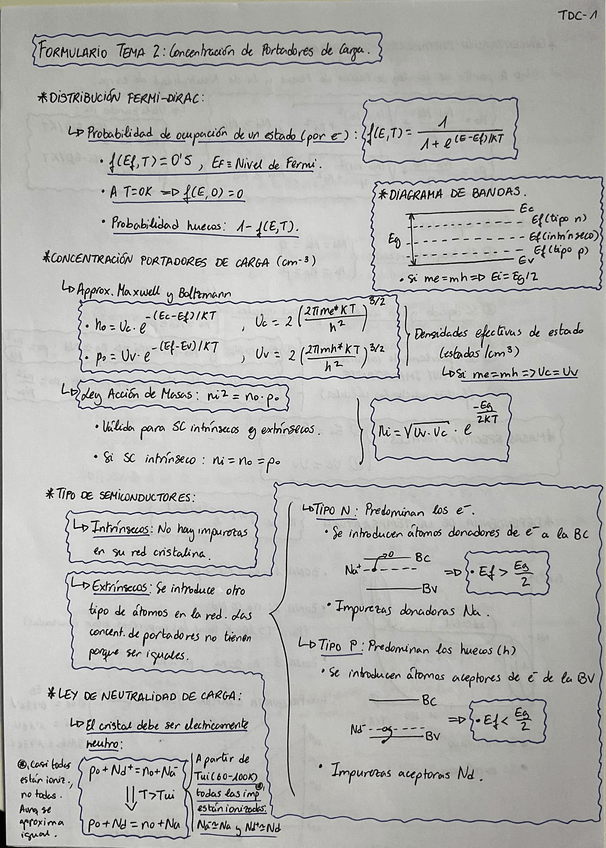 TDC-1
FORMULARIO TEMA 2: Concentración de Portadores de Carga.
*DISTRIBUCIÓN FERMI-DIRAC:
↳ Probabilidad de ocupación de un estado (por e⁻): f(E,T) = 1 / (1 + e^(E-Ef)/KT)
• f(Ef,T) = 0'5 , EF ≡ Nivel de Fermi.
• A T=0K => f(E,0) = 0
• Probabilidad huecos: 1-f(E,T).
*DIAGRAMA DE BANDAS.
Ec
Ef(tipo n)
Eg
Ef(intrínseco)
Ef(tipo p)
Ev
• Si me=mh => Ei = Eg/2
*CONCENTRACIÓN PORTADORES DE CARGA (cm⁻³)
↳ Approx. Maxwell y Boltzmann
• no = Uc · e^-(Ec-Ef)/KT , Uc = 2 (2πme*KT / h²)^3/2
• po = Uv · e^-(Ef-Ev)/KT , Uv = 2 (2πmh*KT / h²)^3/2
Densidades efectivas de estado
(estados/cm³)
↳ Si me=mh => Uc=Uv
↳ Ley Acción de Masas: ni² = no·po
• Válida para SC intrínsecos y extrínsecos.
• Si SC intrínseco: ni = no = po
ni = √Uv·Uc · e^-Eg/2KT
*TIPO DE SEMICONDUCTORES:
↳ Intrínsecos: No hay impurezas
en su red cristalina.
↳ Extrínsecos: Se introduce otro
tipo de átomos en la red. Las
concent. de portadores no tienen
porque ser iguales.
↳ TIPO N: Predominan los e⁻.
• Se introducen átomos donadores de e⁻ a la BC
BC
Na⁺
BV
=> • Ef > Eg/2
• Impurezas donadoras Na.
↳ TIPO P: Predominan los huecos (h)
• Se introducen átomos aceptores de e⁻ de la BV
BC
Nd⁻
BV
=> • Ef < Eg/2
• Impurezas aceptoras Nd.
*LEY DE NEUTRALIDAD DE CARGA:
↳ El cristal debe ser electricamente
neutro:
po + Nd⁺ = no + Na⁻
⇓ T>Tui
po + Nd = no + Na
A partir de
Tui(60-100K)
todas las imp⊛
están ionizadas.
Na⁻≃Na y Nd⁺≃Nd
⊛, casi todas
están ioniz.,
no todas.
Aunq se
aproxima
igual.